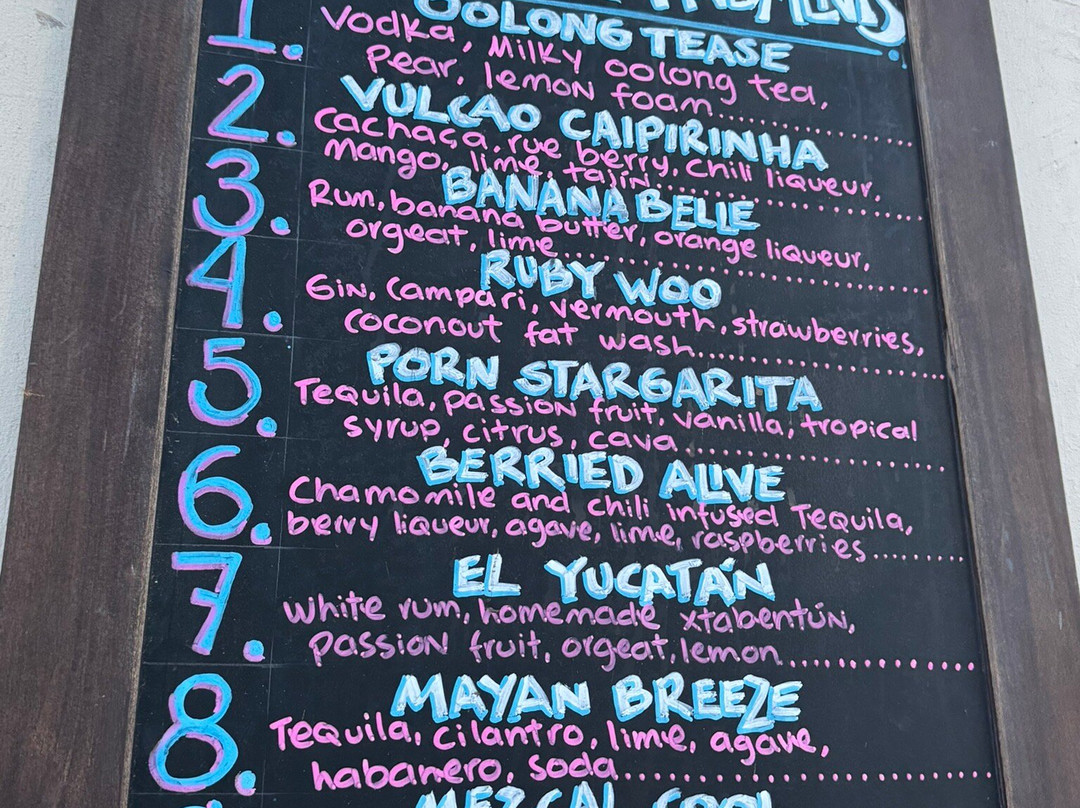 1. OOLONG TEASE
Vodka, Milky oolong tea,
Pear, lemon foam..............
2. VULCAO CAIPIRINHA
Cachaça, rue berry, chili liqueur,
mango, lime, tajín..............
3. BANANA BELLE
Rum, banana butter, orange liqueur,
orgeat, lime..............
4. RUBY WOO
Gin, Campari, vermouth, strawberries,
coconout fat wash..............
5. PORN STARGARITA
Tequila, passion fruit, vanilla, tropical
syrup, citrus, cava..............
6. BERRIED ALIVE
Chamomile and chili infused Tequila,
berry liqueur, agave, lime, raspberries.........
7. EL YUCATÁN
White rum, homemade xtabentún,
passion fruit, orgeat, lemon..............
8. MAYAN BREEZE
Tequila, cilantro, lime, agave,
habanero, soda..............
MEZCAL COOL